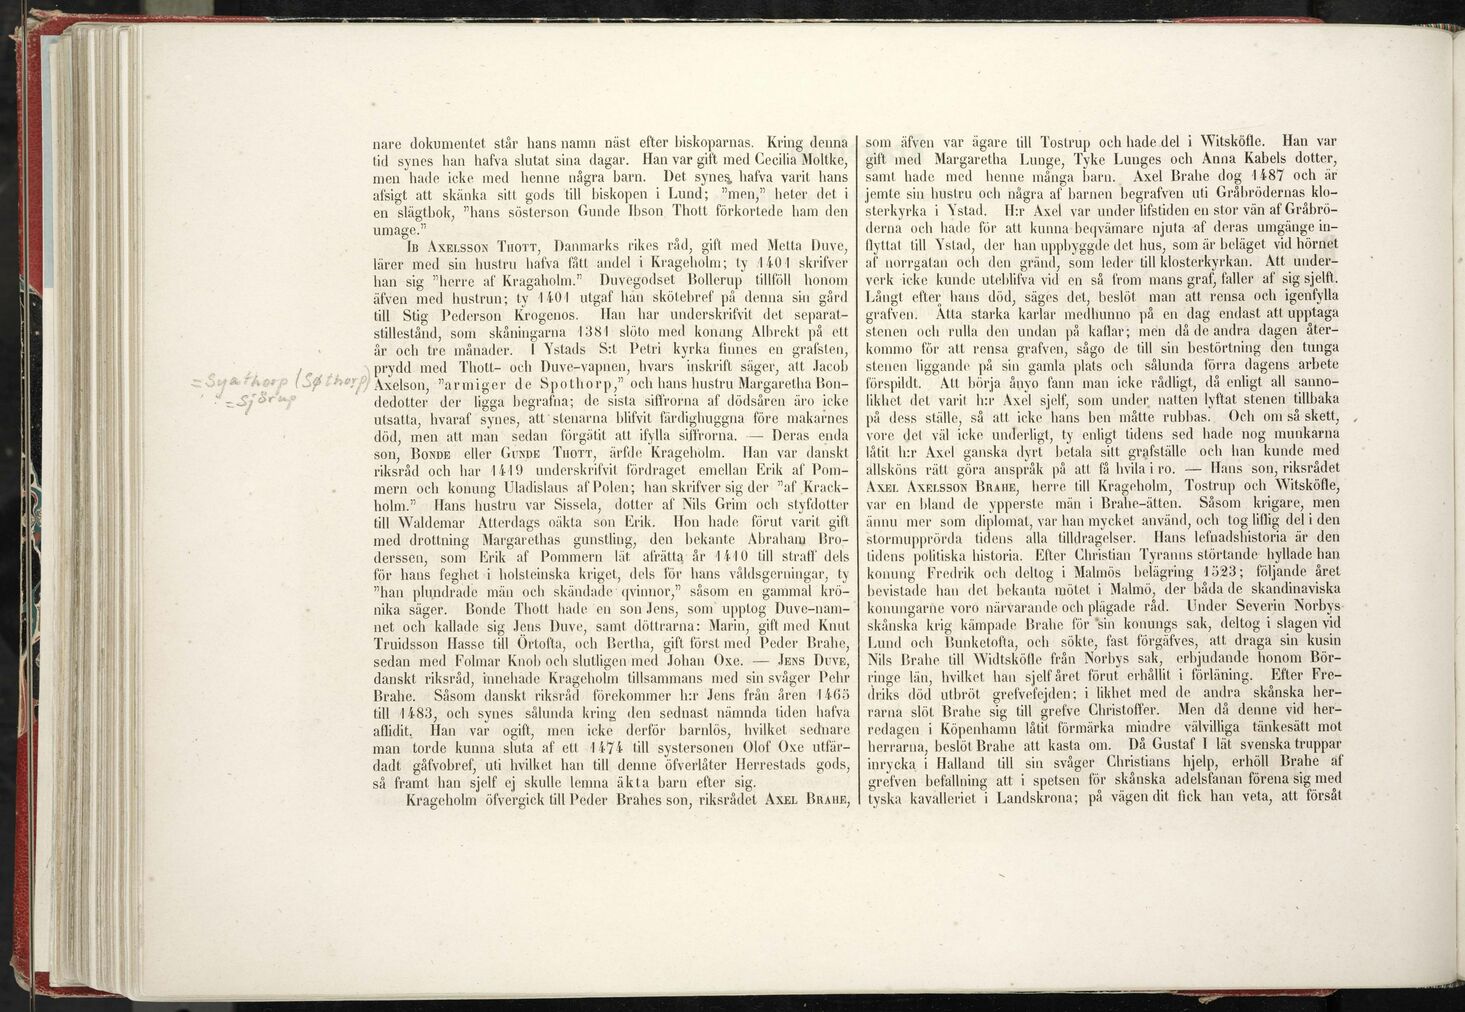 nare dokumentet står hans namn näst efter biskoparnas. Kring denna
tid synes han hafva slutat sina dagar. Han var gift med Cecilia Moltke,
men hade icke med henne några barn. Det synes hafva varit hans
afsigt att skänka sitt gods till biskopen i Lund; ”men,” heter det i
en slägtbok, ”hans sösterson Gunde Ibson Thott förkortede ham den
umage.”
Ib Axelsson Thott, Danmarks rikes råd, gift med Metta Duve,
lärer med sin hustru hafva fått andel i Krageholm; ty 1401 skrifver
han sig ”herre af Kragaholm.” Duvegodset Bollerup tillföll honom
äfven med hustrun; ty 1401 utgaf han skötebref på denna sin gård
till Stig Pederson Krogenos. Han har underskrifvit det separat-
stillestånd, som skåningarna 1381 slöto med konung Albrekt på ett
år och tre månader. I Ystads S:t Petri kyrka finnes en grafsten,
prydd med Thott- och Duve-vapnen, hvars inskrift säger, att Jacob
Axelson, ”armiger de Spothorp,” och hans hustru Margaretha Bon-
dedotter der ligga begrafna; de sista siffrorna af dödsåren äro icke
utsatta, hvaraf synes, att stenarna blifvit färdighuggna före makarnes
död, men att man sedan förgätit att ifylla siffrorna. — Deras enda
son, Bonde eller Gunde Thott, ärfde Krageholm. Han var danskt
riksråd och har 1419 underskrifvit fördraget emellan Erik af Pom-
mern och konung Uladislaus af Polen; han skrifver sig der ”af Krack-
holm.” Hans hustru var Sissela, dotter af Nils Grim och styfdotter
till Waldemar Atterdags oäkta son Erik. Hon hade förut varit gift
med drottning Margarethas gunstling, den bekante Abraham Bro-
derssen, som Erik af Pommern lät afrätta år 1410 till straff dels
för hans feghet i holsteinska kriget, dels för hans våldsgerningar, ty
”han plundrade män och skändade qvinnor,” såsom en gammal krö-
nika säger. Bonde Thott hade en son Jens, som upptog Duve-nam-
net och kallade sig Jens Duve, samt döttrarna: Marin, gift med Knut
Truidsson Hasse till Örtofta, och Bertha, gift först med Peder Brahe,
sedan med Folmar Knob och slutligen med Johan Oxe. — Jens Duve,
danskt riksråd, innehade Krageholm tillsammans med sin svåger Pehr
Brahe. Såsom danskt riksråd förekommer h:r Jens från åren 1465
till 1483, och synes sålunda kring den sednast nämnda tiden hafva
aflidit. Han var ogift, men icke derför barnlös, hvilket sednare
man torde kunna sluta af ett 1474 till systersonen Olof Oxe utfär-
dadt gåfvobref, uti hvilket han till denne öfverlåter Herrestads gods,
så framt han sjelf ej skulle lemna äkta barn efter sig.
Krageholm öfvergick till Peder Brahes son, riksrådet Axel Brahe,
=Syathorp (Søthorp)
=Sjörup
som äfven var ägare till Tostrup och hade del i Witsköfle. Han var
gift med Margaretha Lunge, Tyke Lunges och Anna Kabels dotter,
samt hade med henne många barn. Axel Brahe dog 1487 och är
jemte sin hustru och några af barnen begrafven uti Gråbrödernas klo-
sterkyrka i Ystad. H:r Axel var under lifstiden en stor vän af Gråbrö-
derna och hade för att kunna beqvämare njuta af deras umgänge in-
flyttat till Ystad, der han uppbyggde det hus, som är beläget vid hörnet
af norrgatan och den gränd, som leder till klosterkyrkan. Att under-
verk icke kunde uteblifva vid en så from mans graf, faller af sig sjelft.
Långt efter hans död, säges det, beslöt man att rensa och igenfylla
grafven. Åtta starka karlar medhunno på en dag endast att upptaga
stenen och rulla den undan på kaflar; men då de andra dagen åter-
kommo för att rensa grafven, sågo de till sin bestörtning den tunga
stenen liggande på sin gamla plats och sålunda förra dagens arbete
förspildt. Att börja ånyo fann man icke rådligt, då enligt all sanno-
likhet det varit h:r Axel sjelf, som under natten lyftat stenen tillbaka
på dess ställe, så att icke hans ben måtte rubbas. Och om så skett,
vore det väl icke underligt, ty enligt tidens sed hade nog munkarna
låtit h:r Axel ganska dyrt betala sitt grafställe och han kunde med
allsköns rätt göra anspråk på att få hvila i ro. — Hans son, riksrådet
Axel Axelsson Brahe, herre till Krageholm, Tostrup och Witsköfle,
var en bland de ypperste män i Brahe-ätten. Såsom krigare, men
ännu mer som diplomat, var han mycket använd, och tog liflig del i den
stormupprörda tidens alla tilldragelser. Hans lefnadshistoria är den
tidens politiska historia. Efter Christian Tyranns störtande hyllade han
konung Fredrik och deltog i Malmös belägring 1523; följande året
bevistade han det bekanta mötet i Malmö, der båda de skandinaviska
konungarne voro närvarande och plägade råd. Under Severin Norbys
skånska krig kämpade Brahe för sin konungs sak, deltog i slagen vid
Lund och Bunketofta, och sökte, fast förgäfves, att draga sin kusin
Nils Brahe till Widtsköfle från Norbys sak, erbjudande honom Bör-
ringe län, hvilket han sjelf året förut erhållit i förläning. Efter Fre-
driks död utbröt grefvefejden; i likhet med de andra skånska her-
rarna slöt Brahe sig till grefve Christoffer. Men då denne vid her-
redagen i Köpenhamn låtit förmärka mindre välvilliga tänkesätt mot
herrarna, beslöt Brahe att kasta om. Då Gustaf I lät svenska truppar
inrycka i Halland till sin svåger Christians hjelp, erhöll Brahe af
grefven befallning att i spetsen för skånska adelsfanan förena sig med
tyska kavalleriet i Landskrona; på vägen dit fick han veta, att försåt